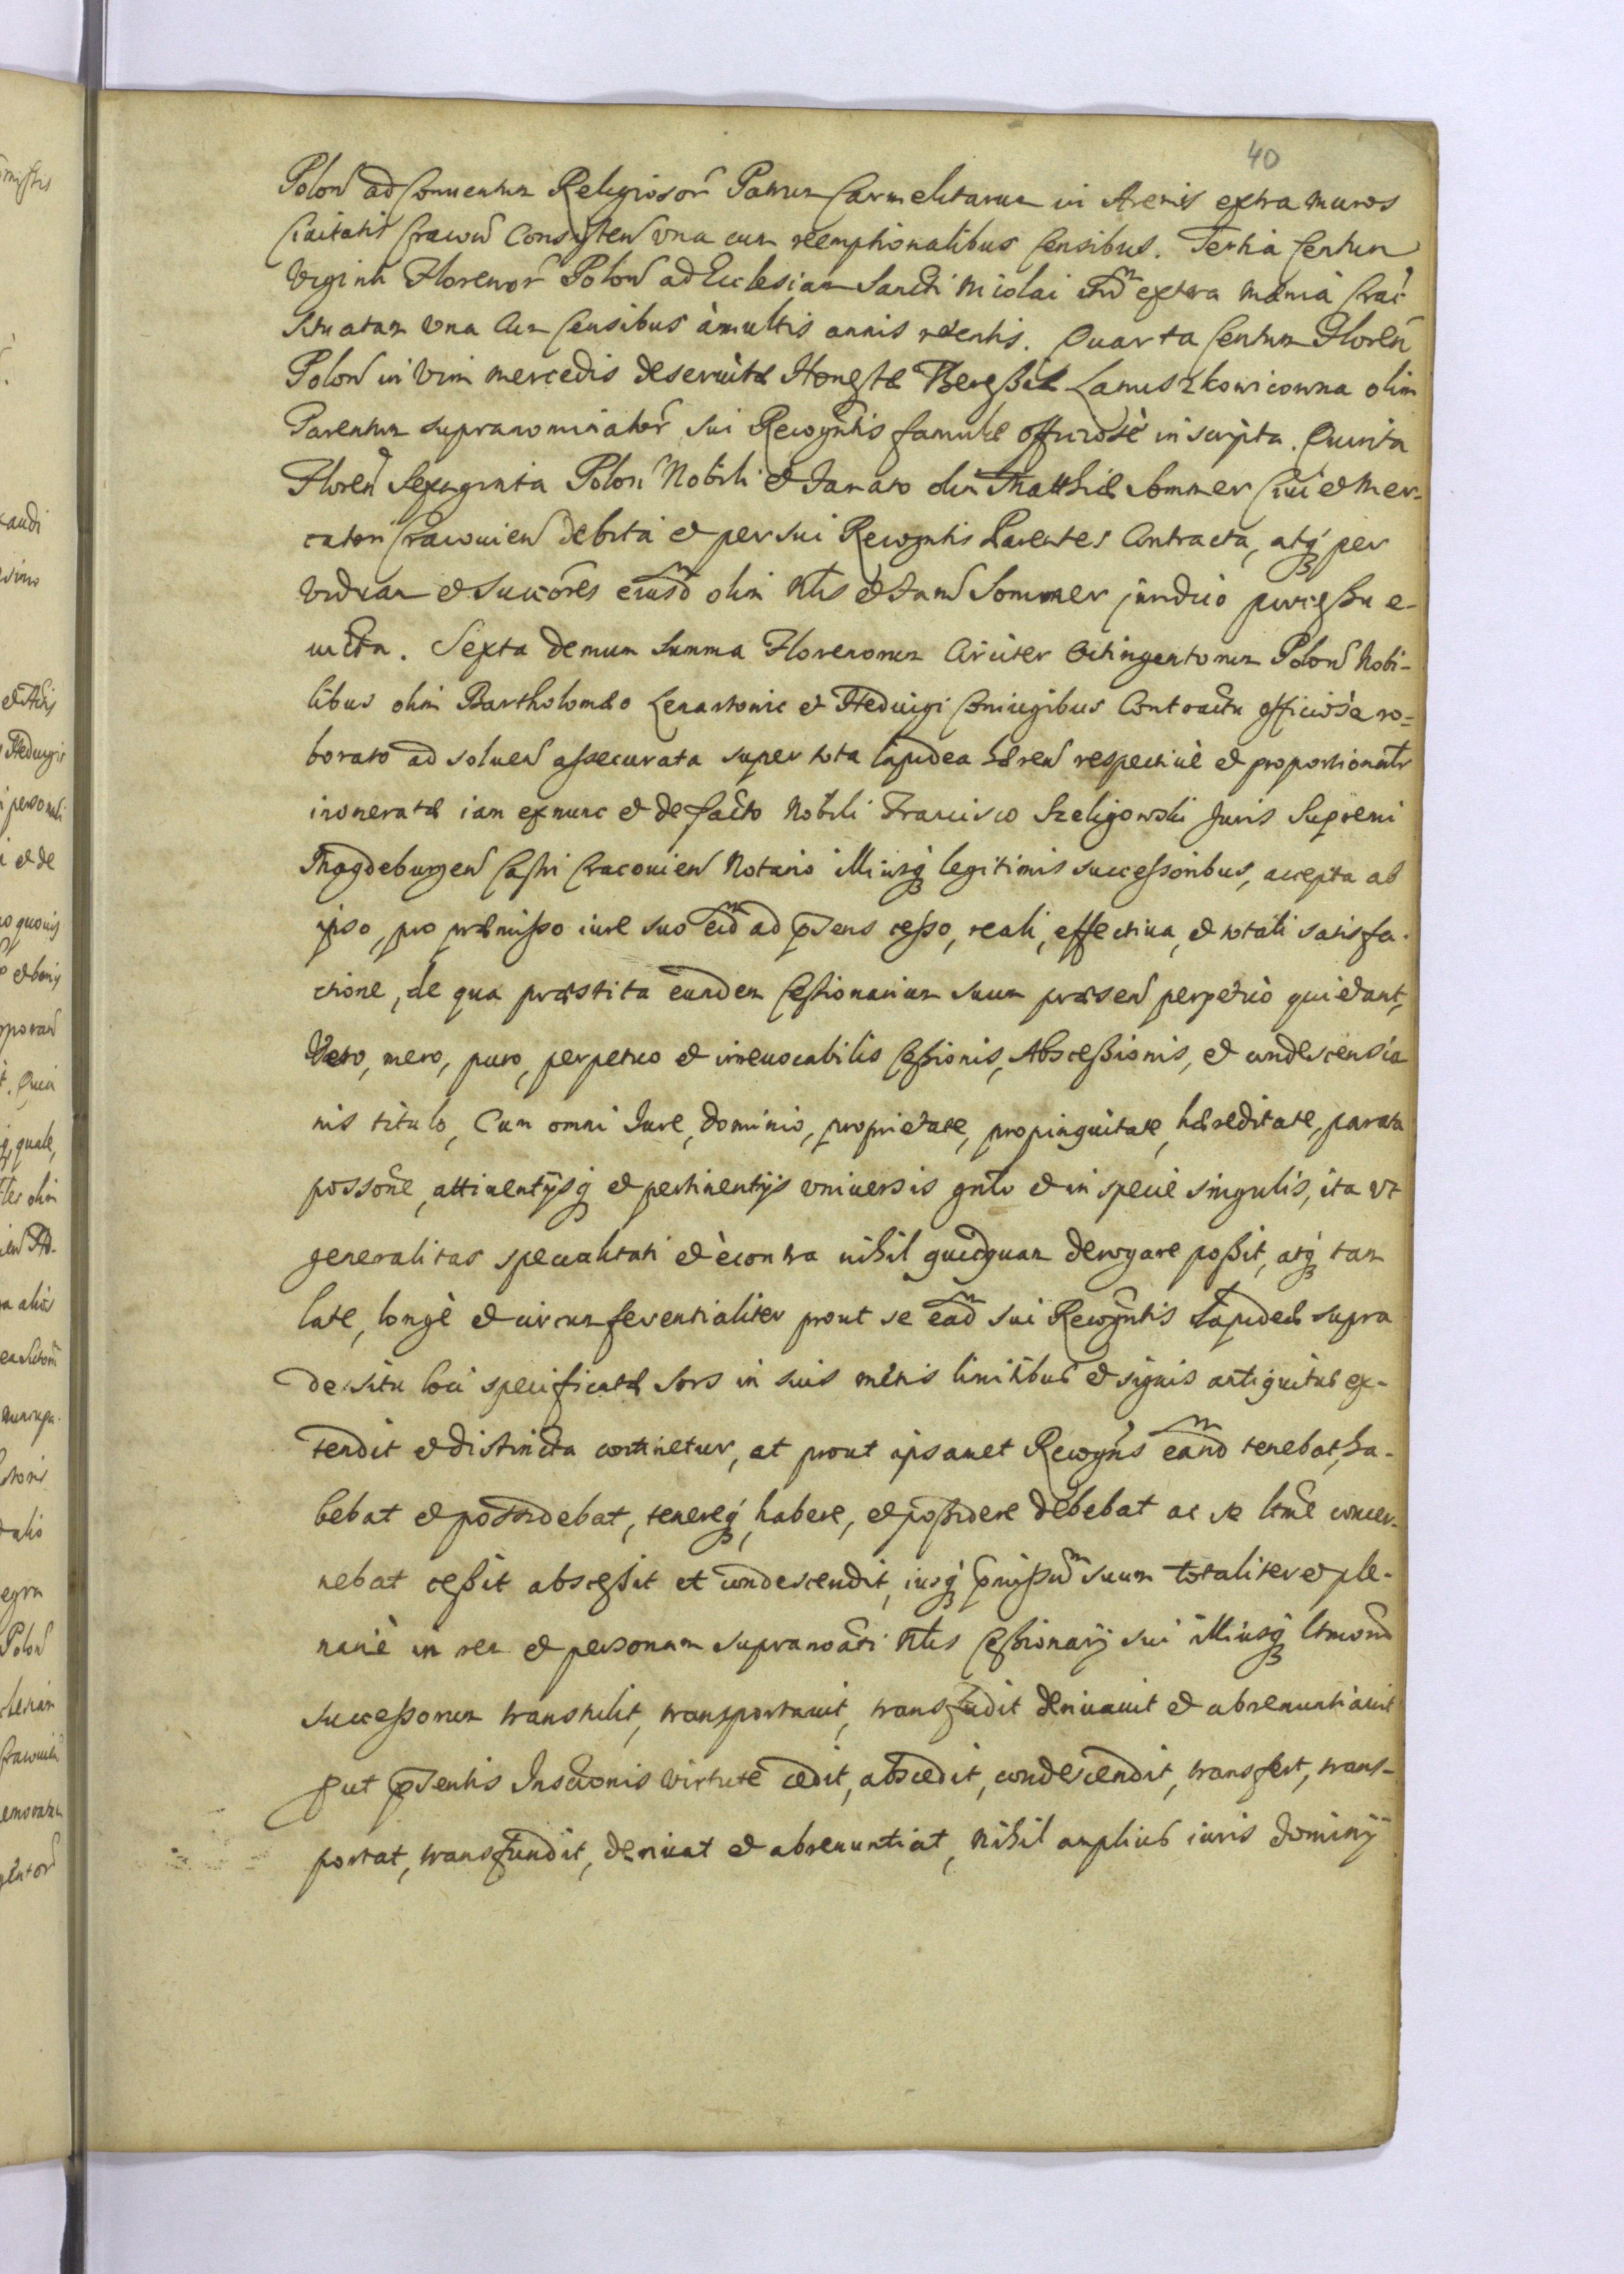 40
Polon̄ ad Conuentum Religiosor̄ Patrum Carmelitarum in Arenis extra muros
Ciuitatis Cracou̅ Consisten̄ vna cum reemptionalibus Censibus. Tertia Centum
Viginti Florenor̄ Polon̄ ad Ecclesiam Sancti Nicolai itid̄m extra Mænia Crac̄
Situatam vna Cum Censibus à multis annis retentis. Quarta Centum Floren̄
Polon̄ in Vim mercedis deseruitæ Honestæ Theressiæ Lanuszkowicowna olim
Parentum supranominator̄ sui Recogn̄tis famulæ officiosè inscripta. Quinta
Floren̄ Sexaginta Polon̄ Nobili et Famato olim Matthiæ Sommer Ciui et Mer=
catori Cracouien̄ debita et per sui Recogn̄tis Parentes Contracta, atq̄ per
viduam et Succōres eiusd̄m olim Nl̄is et Fam̄ Sommer juridico processu e-
uicta. Sexta demum Summa Florenorum Circiter Octingentorum Polon̄ Nobi-
libus olim Bartholomæo Lenartowic et Heduigi Coniugibus Contractu officiosè ro=
borato ad soluen̄ assecurata super tota lapidea hæren̄ respectiuè et proportionatr̄
inoneratæ iam ex nunc et de facto Nobili Francisco Szeligowski Juris Supremi
Magdeburgen̄ Castri Cracouien̄ Notario illiusq̄ legitimis successoribus, accepta ab
ipso, pro præmisso iure suo eid̄m ad p̄sens cesso, reali, effectiua, et totali satisfa-
ctione, de qua præstita eundem Cessionarium suum præsen̄ perpetuò quietant,
Vero, mero, puro, perpetuo et irreuocabilis Cessionis, Abscessionis, et condescensio
nis titulo, Cum omni Iure, dominio, proprietate, propinquitate, hæreditate, parata
possōne, attinentijsq̄ et pertinentijs vniuersis gn̄lr̄ et in specie singulis, ita vt
generalitas specialitati et è contra nihil quicquam derogare possit, atq̄ tam
late, longè et circumferentialiter prout se ead̄m sui Recogn̄tis Lapideæ supra
de situ loci specificatæ Sors in suis metis limitibus et signis antiquitus ex-
tendit et distincta continetur, at prout ipsamet Recogn̄s eand̄m tenebat, ha-
bebat et possidebat, tenereq̄, habere, et possidere debebat ac se ltm̄e concer-
nebat cessit abscessit et condescendit, iusq̄ p̄missum suum totaliter et ple-
nariè in rem et personam supranoāti Nl̄is Cessionarij sui illiusq̄ ltmorum
successorum transtulit, transportauit, transfudit deriuauit et abrenuntiauit
put p̄sentis Inscrōnis virtute cedit, abscedit, condescendit, transfert, trans-
portat, transfundit, deriuat et abrenuntiat, Nihil amplius iuris dominij